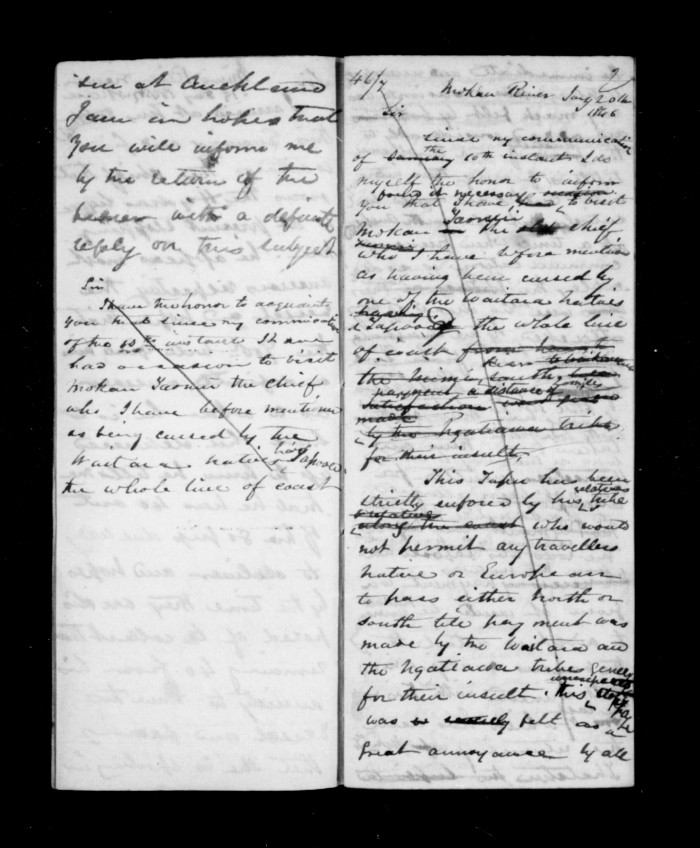 sin at Auckland
I am in hopes that
you will inform me
by the return of the
bearer with a definite
reply on this subject
Sir
I have the honor to acquaint
you that since my communication
of the 10th instant I have
had occasion to visit
Mokau Taonui the chief
who I have before mention
as being cursed by the
Waitara natives having tapooed
the whole line of coast
46/7
7
Mokau River Jany 20th
1846
Sir
Since my communication
of the 10th instant I do
myself the honor to inform
you that I have found it necessary to visit
Mokau Taonui the chief
who I have before mention
as having been cursed by
one of the Waitara natives
& tapooed the whole line
of coast from
the
payment a distance of miles
satisfaction
made
by the Ngatiawa tribe
for their insult
This Tapu has been
strictly enforced by his relatives tribe
& relatives
along the coast who would
not permit any travellers
native or European
to pass either North or
South till payment was
made by the Waitara and
the Ngatiawa tribes
for their insult. this
was felt as a
great annoyance by all